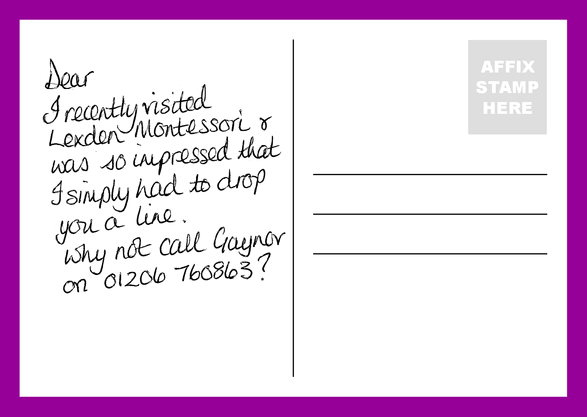 Dear
I recently visited
Lexden Montessori &
was so impressed that
I simply had to drop
you a line.
Why not call Gaynor
on 01206 760863?
AFFIX
STAMP
HERE